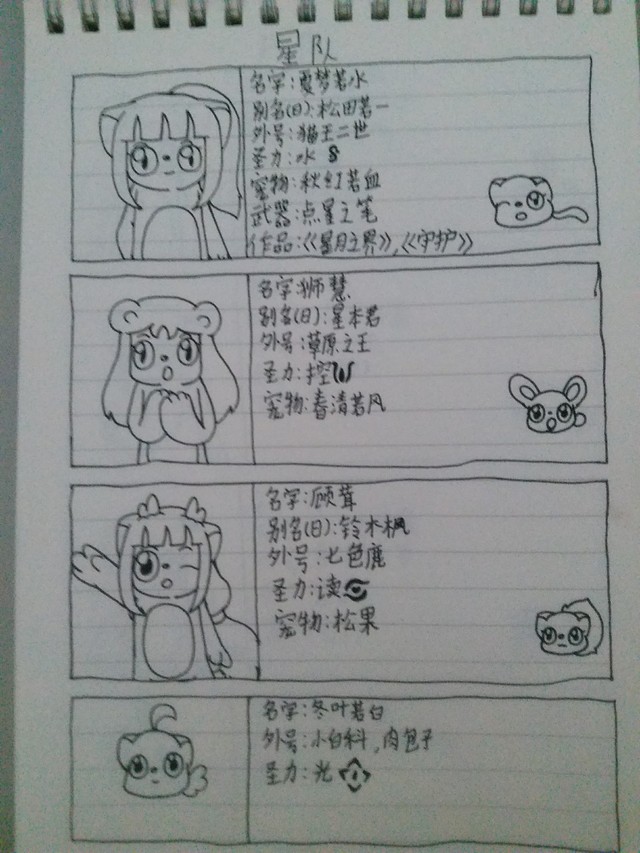 星队
名字:夏梦若水
别名(日):松田若一
外号:猫王二世
圣力:水
宠物:秋红若血
武器:点星之笔
作品:《星月之界》,《守护》
名字:狮慧
别名(日):星本君
外号:草原之王
圣力:控
宠物:春清若风
名字:顾茸
别名(日):铃木枫
外号:七色鹿
圣力:读
宠物:松果
名字:冬叶若白
外号:小白科,肉包子
圣力:光